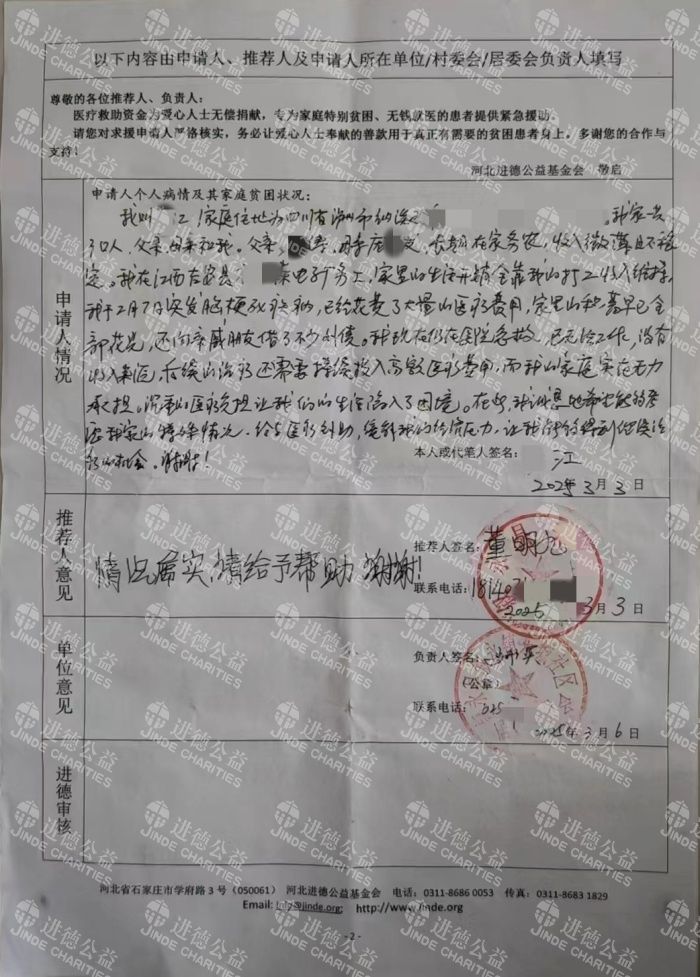 以下内容由申请人、推荐人及申请人所在单位/村委会/居委会负责人填写
尊敬的各位推荐人、负责人:
医疗救助资金为爱心人士无偿捐献,专为家庭特别贫困、无钱就医的患者提供紧急援助。
请您对求援申请人严格核实,务必让爱心人士奉献的善款用于真正有需要的贫困患者身上。多谢您的合作与
支持!
河北进德公益基金会 敬启
申请人情况
申请人个人病情及其家庭贫困状况:
我叫 江,家庭住址为四川省泸州市纳溪 。我家一共
3口人,父亲、母亲和我。父亲 ,母亲 ,长期在家务农,收入微薄且不稳
定。我在江西 电子厂务工,家里的生活开销全靠我的打工收入维持,
我于2月7日突发脑梗 ,已经花费了大量的医疗费用,家里的积蓄早已全
部花光,还向亲戚朋友借了不少外债。我现在仍在医院急救,已无法工作,没有
收入来源,后续的治疗还需要持续投入高额医疗费用,而我的家庭实在无力
承担。沉重的医疗负担让我们的生活陷入了困境。在此,我 希望能够考
虑我家的特殊情况,给予医疗救助,缓解我的经济压力,让我能够得到继续治
疗的机会。谢谢!
本人或代笔人签名: 江
2025年3月3日
推荐人意见
情况属实,请给予帮助 谢谢!
推荐人签名:董明
联系电话:1814
2025 3月3日
单位意见
负责人签名:
(公章)
联系电话:
2025年3月6日
进德审核
河北省石家庄市学府路3号(050061) 河北进德公益基金会 电话:0311-8686 0053 传真:0311-8683 1829
Email: info@jinde.org; http://www.jinde.org
-2-
进德公益
JINDE CHARITIES